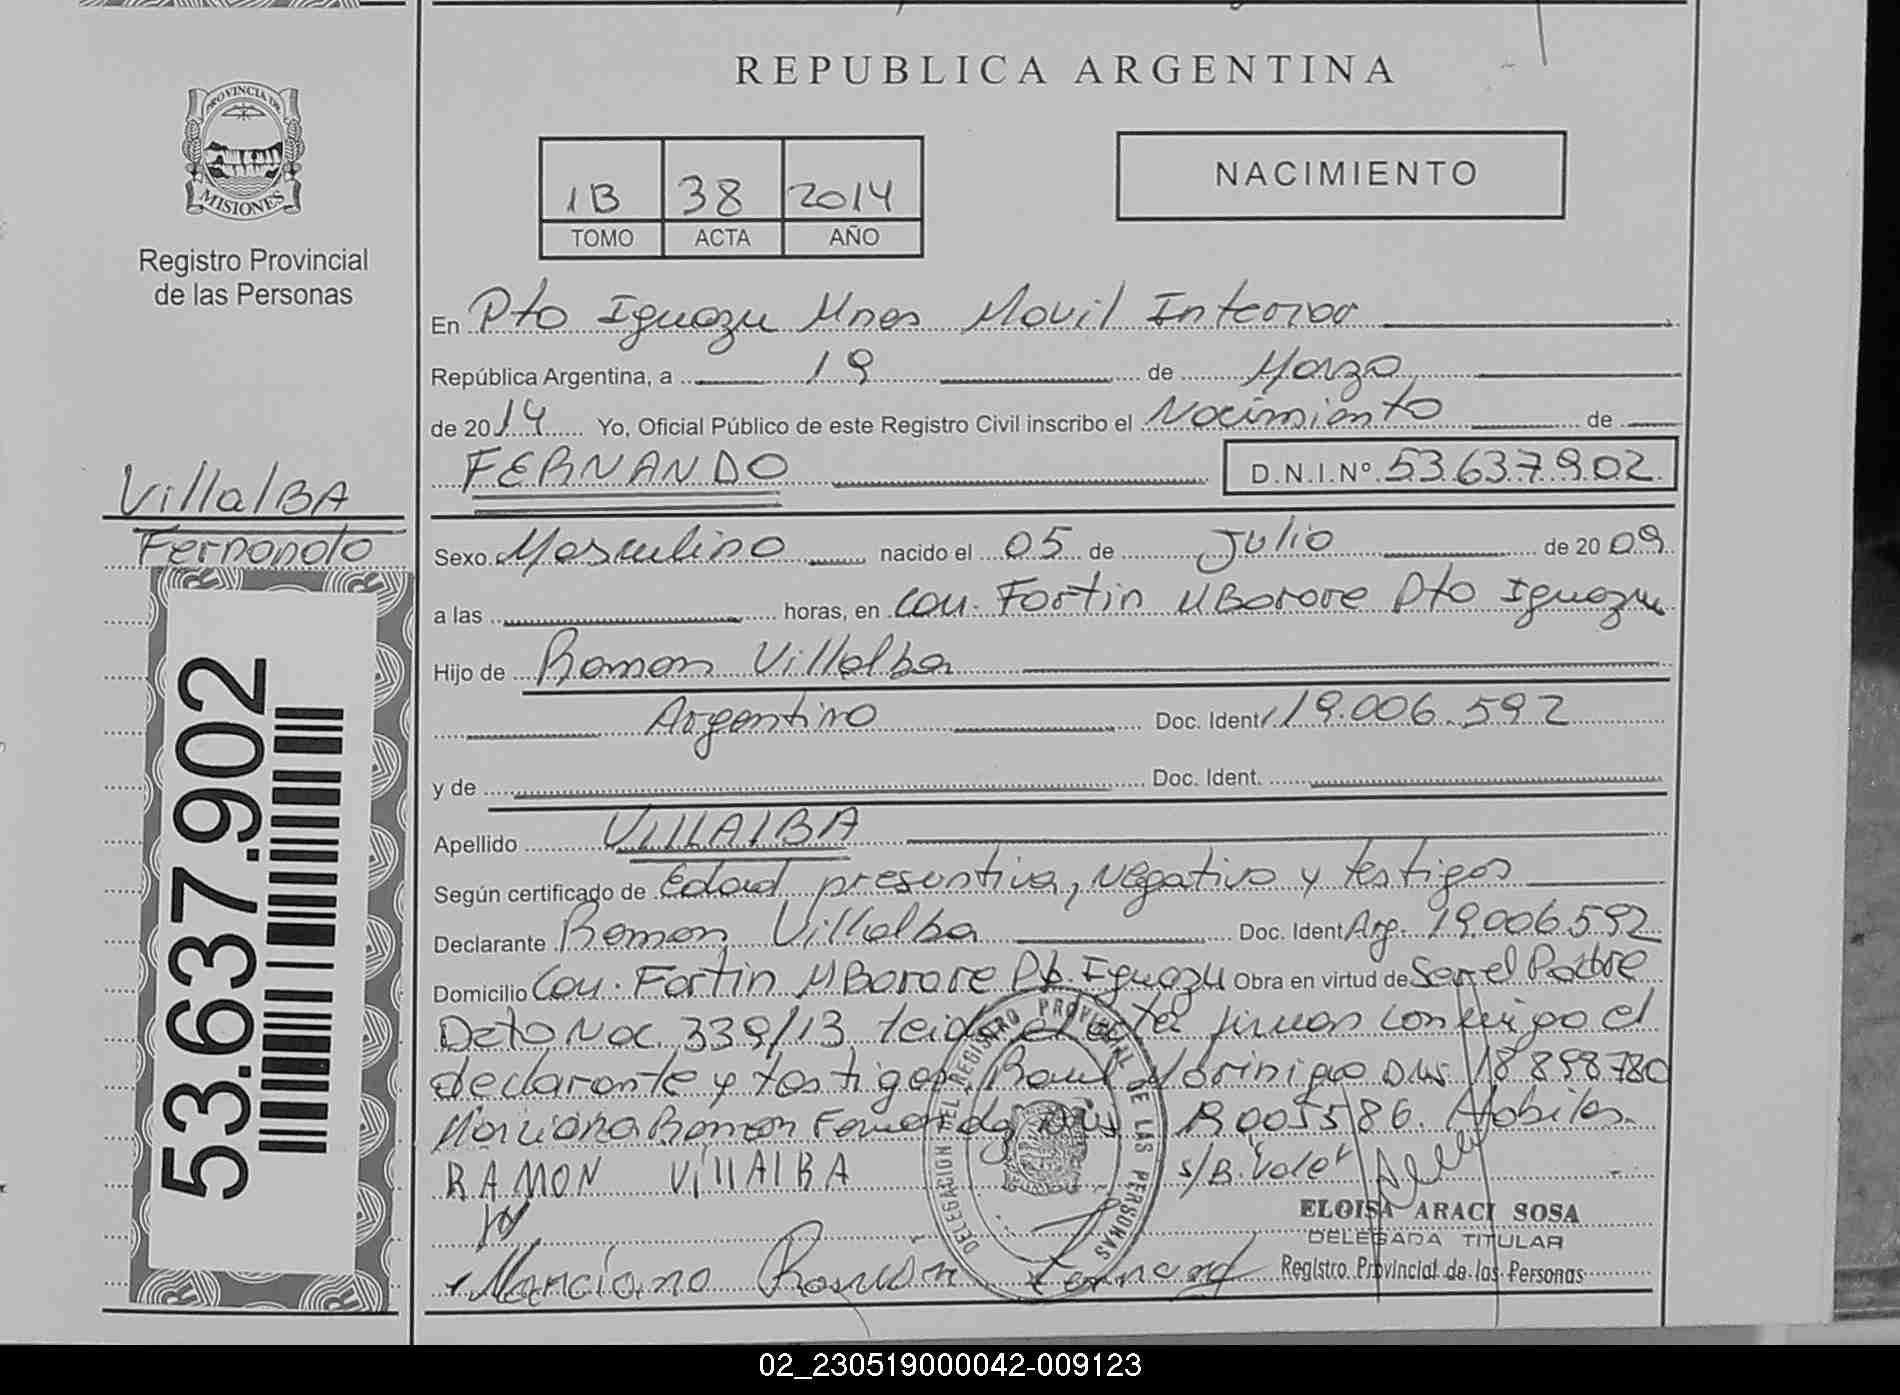 REPUBLICA ARGENTINA
PROVINCIA DE
MISIONES
Registro Provincial
de las Personas
1B 38 2014
TOMO ACTA AÑO
NACIMIENTO
En Pto Iguazu Mnes Movil Interior
República Argentina, a 19 de Marzo
de 2014 Yo, Oficial Público de este Registro Civil inscribo el Nacimiento de
FERNANDO D.N.I.Nº 53.637.902
VillalBA
Fernando
53.637.902
Sexo Masculino nacido el 05 de Julio de 2009
a las horas, en Com. Fortin MBorore Pto Iguazu
Hijo de Ramon Villalba
Argentino Doc. Ident. 19.006.592
y de Doc. Ident.
Apellido VillAlBA
Según certificado de Edad presuntiva, Negativo y testigos
Declarante Ramon Villalba Doc. Ident Arg. 19.006.592
Domicilio Com. Fortin MBorore Pto. Iguazu Obra en virtud de Ser el Padre
Dcto Nac 339/13 leida el acta firman conmigo el
declarante y testigos Raul Morinigo DNI 18 898 780
Ramon DNI Habiles.
RAMON VillAlBA s/B. Vale
DELEGACION DEL REGISTRO PROVINCIAL DE LAS PERSONAS
ELOISA ARACI SOSA
DELEGADA TITULAR
Marciano Ramon Registro Provincial de las Personas
02_230519000042-009123